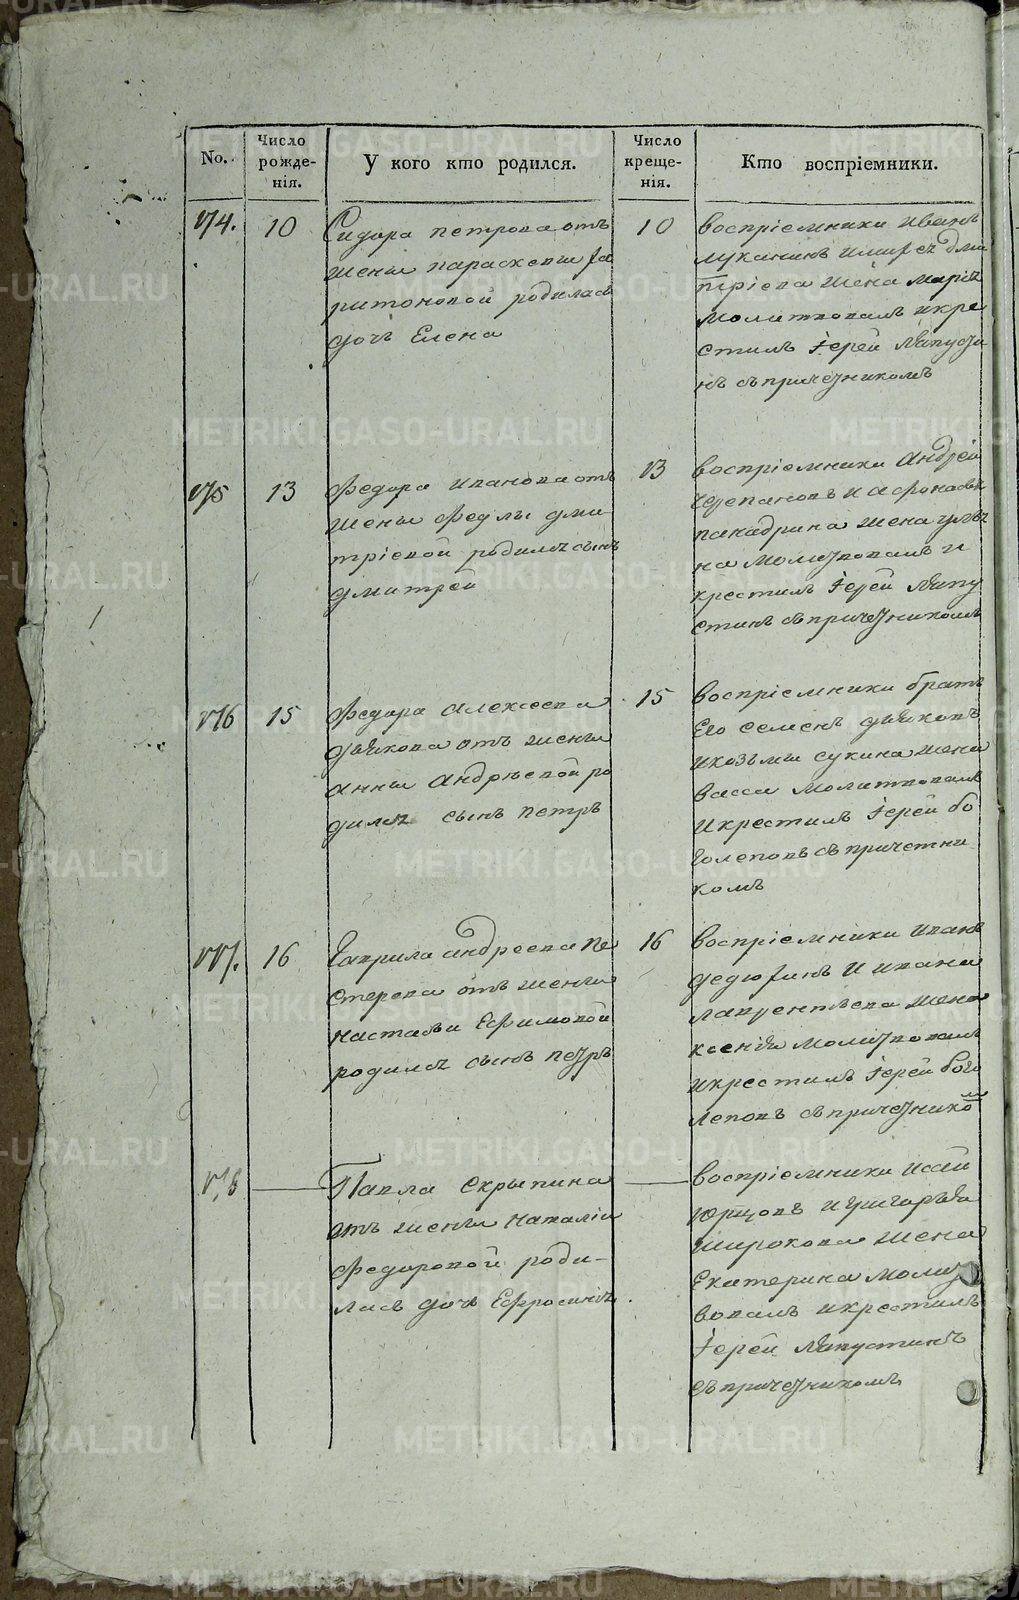 No.
Число рожде-нія.
У кого кто родился.
Число креще-нія.
Кто воспріемники.
174.
10
Сидора петрова отъ
жены параскевы ха
ритоновой родилась
дочь Елена
10
воспріемники иванъ
луканинъ
тріева жена марія
молитвовалъ и кре
стилъ Іерей Капусти
нъ съ причетникомъ
175
13
Федора иванова отъ
жены Феклы дми
тріевой родился сынъ
дмитрей
13
воспріемники андрей
черепановъ и афонасья
жена улья
на молитвовалъ и
крестилъ Іерей Капу
стинъ съ причетникомъ
176
15
Федора алексеева
дьячкова отъ жены
анны андрѣевой ро
дился сынъ петръ
15
воспріемники братъ
Его семенъ дьячковъ
и козьмы сукина жена
васса молитвовалъ
и крестилъ Іерей бо
голеповъ съ причетни
комъ
177.
16
Гаврила андреева пе
стерева отъ жены
настасьи Ефимовой
родился сынъ петръ
16
воспріемники иванъ
дедюхинъ и ивана
лаврентьева жена
ксенія молитвовалъ
и крестилъ Іерей бого
леповъ съ причетникомъ
178
Павла скрыпина
отъ жены наталіи
Федоровой роди-
лась дочь Ефросинія
воспріемники исай
юрцовъ и григорья
широкова жена
Екатерина молит
вовалъ и крестилъ
Іерей Капустинъ
съ причетникомъ
METRIKI.GASO-URAL.RU